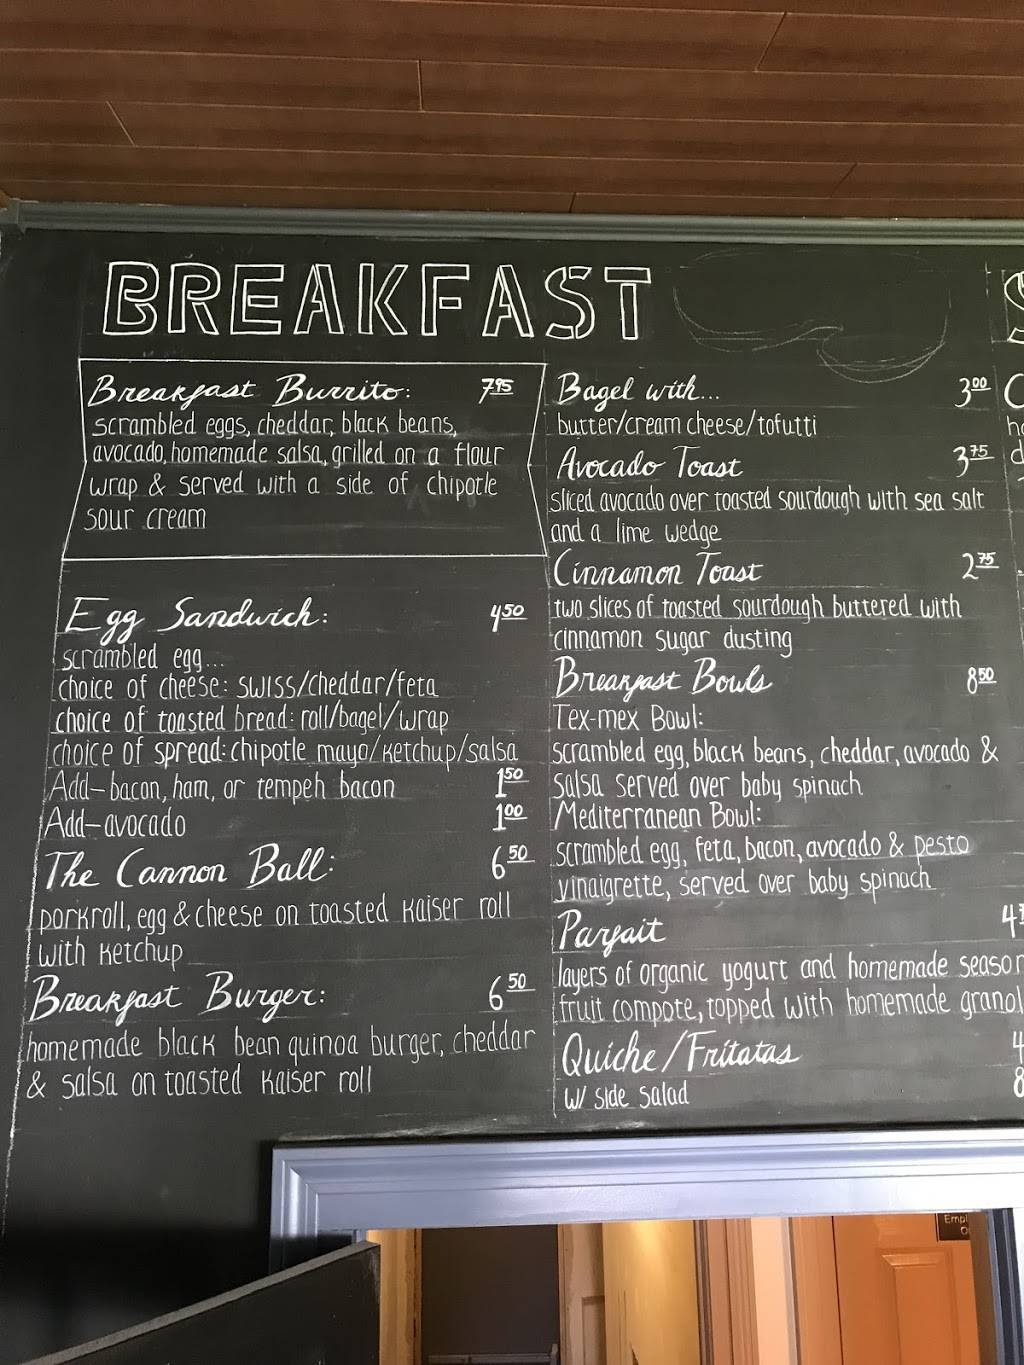 BREAKFAST
Breakfast Burrito: 7.95
scrambled eggs, cheddar, black beans,
avocado, homemade salsa, grilled on a flour
wrap & served with a side of chipotle
sour cream
Egg Sandwich: 4.50
scrambled egg...
choice of cheese: swiss/cheddar/feta
choice of toasted bread: roll/bagel/wrap
choice of spread: chipotle mayo/ketchup/salsa
Add-bacon, ham, or tempeh bacon 1.50
Add-avocado 1.00
The Cannon Ball: 6.50
porkroll, egg & cheese on toasted kaiser roll
with ketchup
Breakfast Burger: 6.50
homemade black bean quinoa burger, cheddar
& salsa on toasted kaiser roll
Bagel with... 3.00
butter/cream cheese/tofutti
Avocado Toast 3.75
sliced avocado over toasted sourdough with sea salt
and a lime wedge
Cinnamon Toast 2.75
two slices of toasted sourdough buttered with
cinnamon sugar dusting
Breakfast Bowls 8.50
Tex-mex Bowl:
scrambled egg, black beans, cheddar, avocado &
salsa served over baby spinach
Mediterranean Bowl:
scrambled egg, feta, bacon, avocado & pesto
vinaigrette, served over baby spinach
Parfait
layers of organic yogurt and homemade
fruit compote, topped with homemade
Quiche/Fritatas
w/ side salad